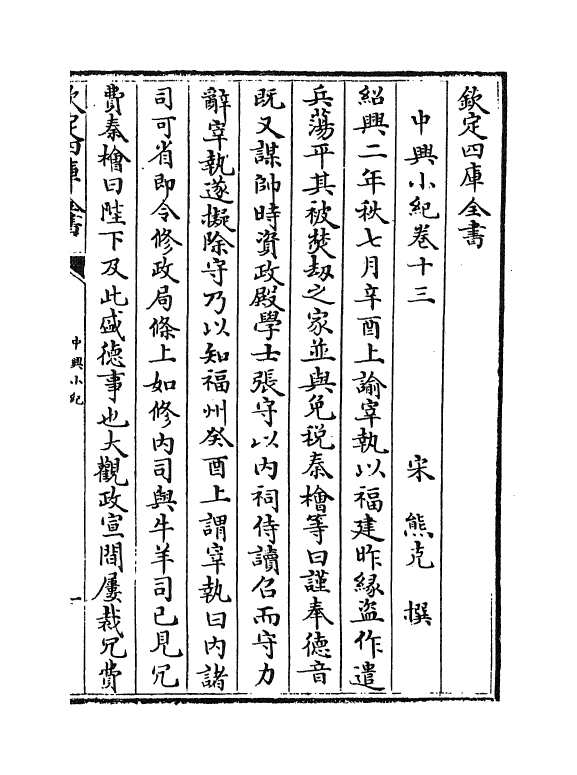 欽定四庫全書
中興小紀卷十三
宋 熊克 撰
紹興二年秋七月辛酉上諭宰執以福建昨縁盜作遣
兵蕩平其被焚刼之家並與免税秦檜等曰謹奉德音
既又謀帥時資政殿學士張守以内祠侍讀召而守力
辭宰執遂擬除守乃以知福州癸酉上謂宰執曰内諸
司可省即令修政局條上如修内司與牛羊司已見冗
費秦檜曰陛下及此盛德事也大觀政宣間屢裁冗費
欽定四庫全書
中興小紀
一